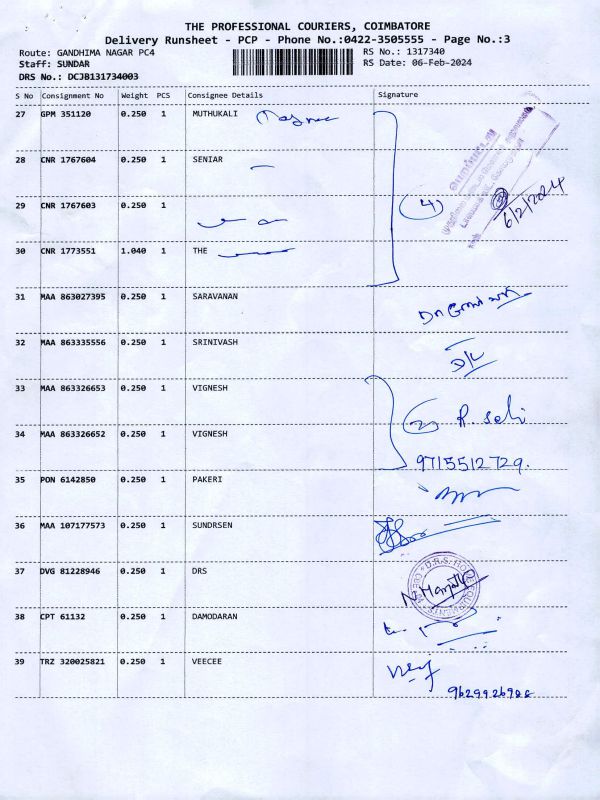 THE PROFESSIONAL COURIERS, COIMBATORE
Delivery Runsheet - PCP - Phone No.:0422-3505555 - Page No.:3
Route: GANDHIMA NAGAR PC4 RS No.: 1317340
Staff: SUNDAR RS Date: 06-Feb-2024
DRS No.: DCJB131734003
S No Consignment No Weight PCS Consignee Details Signature
27 GPM 351120 0.250 1 MUTHUKALI
28 CNR 1767604 0.250 1 SENIAR
29 CNR 1767603 0.250 1
(4)
6/2/2024
30 CNR 1773551 1.040 1 THE
31 MAA 863027395 0.250 1 SARAVANAN
32 MAA 863335556 0.250 1 SRINIVASH
33 MAA 863326653 0.250 1 VIGNESH
(2) R. Selvi
34 MAA 863326652 0.250 1 VIGNESH
9715512729.
35 PON 6142850 0.250 1 PAKERI
36 MAA 107177573 0.250 1 SUNDRSEN
37 DVG 81228946 0.250 1 DRS
38 CPT 61132 0.250 1 DAMODARAN
39 TRZ 320025821 0.250 1 VEECEE